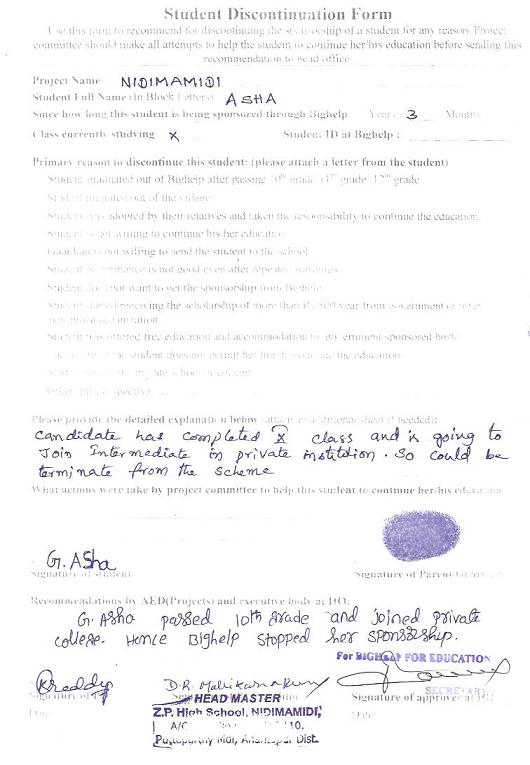 Student Discontinuation Form
Use this form to recommend for discontinuing the sponsorship of a student for any reason. Project
committee should make all attempts to help the student to continue her/his education before sending this
recommendation to head office
Project Name NIDIMAMIDI
Student Full Name (In Block Letters) ASHA
Since how long this student is being sponsored through Bighelp Years 3 Months
Class currently studying X Student ID at Bighelp :
Primary reason to discontinue this student: (please attach a letter from the student)
Student graduated out of Bighelp after passing 10th grade 12th grade
Student migrated out of the village
Student was adopted by their relatives and taken the responsibility to continue the education.
Student is not willing to continue his/her education
Guardian is not willing to send the student to the school
Student performance is not good even after repeated warnings
Student does not want to get the sponsorship from Bighelp
Student started receiving the scholarship of more than Rs 500 year from government or other
organization
Student was offered free education and accommodation by government sponsored
the student does not permit her/him to continue the education
private school or
Other, please specify
Please provide the detailed explanation below (attach additional sheet if needed):
Candidate has completed X class and is going to
Join Intermediate in private institution. So could be
terminate from the scheme
What actions were take by project committee to help this student to continue her/his education
G. ASha
Signature of student Signature of Parent
Recommendations by AED(Projects) and executive body at HO:
G. Asha passed 10th Grade and joined private
college. Hence Bighelp stopped her sponsorship.
For BIGHELP FOR EDUCATION
SECRETARY
Signature of HEAD MASTER Signature of approver at HO
Date Z.P. High School, NIDIMAMIDI, Date:
A/C 10.
Puttaparthy Mdl, Anantapur Dist.